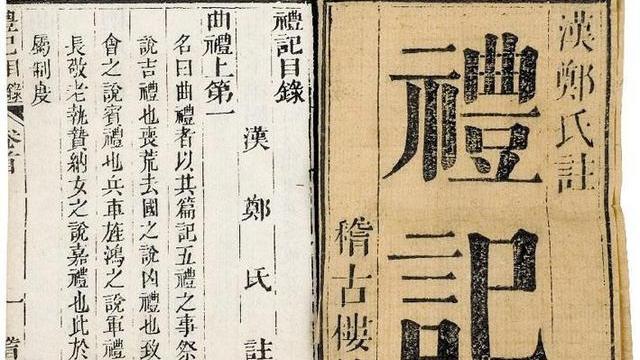 漢鄭氏註
禮記
稽古樓
禮記目錄
漢鄭氏註
曲禮上第一
名曰曲禮者以其篇記五禮之事祭
說吉禮也喪荒去國之說凶禮也致
會之說賓禮也兵車旌鴻之說軍禮
長敬老執贄納女之說嘉禮也此於
屬制度
禮記目錄
卷首
一